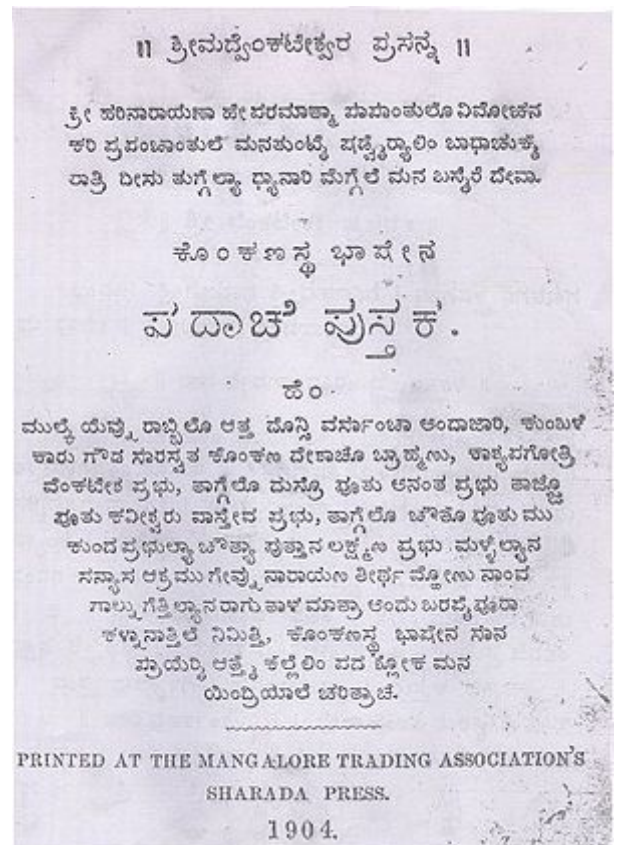 ॥ ಶ್ರೀಮದ್ವೆಂಕಟೇಶ್ವರ ಪ್ರಸನ್ನ ॥
ಶ್ರೀ ಹರಿನಾರಾಯಣಾ ಜೇ ಪರಮಾತ್ಮಾ ಪಾಪಾಂತುಲೊ ವಿಮೋಚನ
ಕರಿ ಪ್ರಪಂಚಾಂತುಲೆ ಮನತುಂಟೈ ಷಡ್ವೈರ್ಯಾಲಿಂ ಬಾಧಾಚುಕೈ
ರಾತ್ರಿ ದೀಸು ತುಗ್ಗೆಲ್ಯಾ ಧ್ಯಾನಾರಿ ಮೆಗ್ಗೆಲೆ ಮನ ಬಸ್ಸೈರೆ ದೇವಾ.
ಕೊಂಕಣಸ್ಥ ಭಾಷೇನ
ಪದಾಚೆ ಪುಸ್ತಕ.
ಹೆಂ
ಮುಲ್ಕೆ ಯೆವ್ನು ರಾಬ್ಬಿಲೊ ಆತ್ತ ದೊನ್ಸಿ ವರ್ಸಾಂಚಾ ಅಂದಾಜಾರಿ, ಕುಂಬಳೆ
ಕಾರು ಗೌಡ ಸಾರಸ್ವತ ಕೊಂಕಣ ದೇಶಾಚೊ ಬ್ರಾಹ್ಮಣು, ಕಾಶ್ಯಪಗೋತ್ರಿ
ವೆಂಕಟೇಶ ಪ್ರಭು, ತಾಗ್ಗೆಲೊ ದುಸ್ರೊ ಪೂತು ಅನಂತ ಪ್ರಭು ತಾಜ್ಜೊ
ಪೂತು ಕವೀಶ್ವರು ವಾಸ್ದೇವ ಪ್ರಭು, ತಾಗ್ಗೆಲೊ ಚೌತೊ ಪೂತು ಮು
ಕುಂದ ಪ್ರಭುಲ್ಯಾ ಚೌತ್ಯಾ ಪುತ್ತಾನ ಲಕ್ಷ್ಮಣ ಪ್ರಭು ಮಳ್ಳೆಲ್ಯಾನ
ಸನ್ಯಾಸ ಆಶ್ರಮು ಗೇವ್ನು ನಾರಾಯಣ ತೀರ್ಥ ಮ್ಹೋಣು ನಾಂವ
ಗಾಲ್ನು ಗೆತ್ತಿಲ್ಯಾನ ರಾಗು ತಾಳ ಮಾತ್ರಾ ಅಂದು ಬರಪೈ ಪೂರಾ
ಕಳ್ನಾಸಾತ್ತಿಲೆ ನಿಮಿತ್ತಿ, ಕೊಂಕಣಸ್ಥ ಭಾಷೇನ ಸಾನ
ಪ್ರಾಯೆರ್ಚಿ ಆತ್ಮೈ ಕಲ್ಲೆಲಿಂ ಪದ ಶ್ಲೋಕ ಮನ
ಯಿಂದ್ರಿಯಾಲೆ ಚರಿತ್ರಾಚೆ.
PRINTED AT THE MANGALORE TRADING ASSOCIATION'S
SHARADA PRESS.
1904.